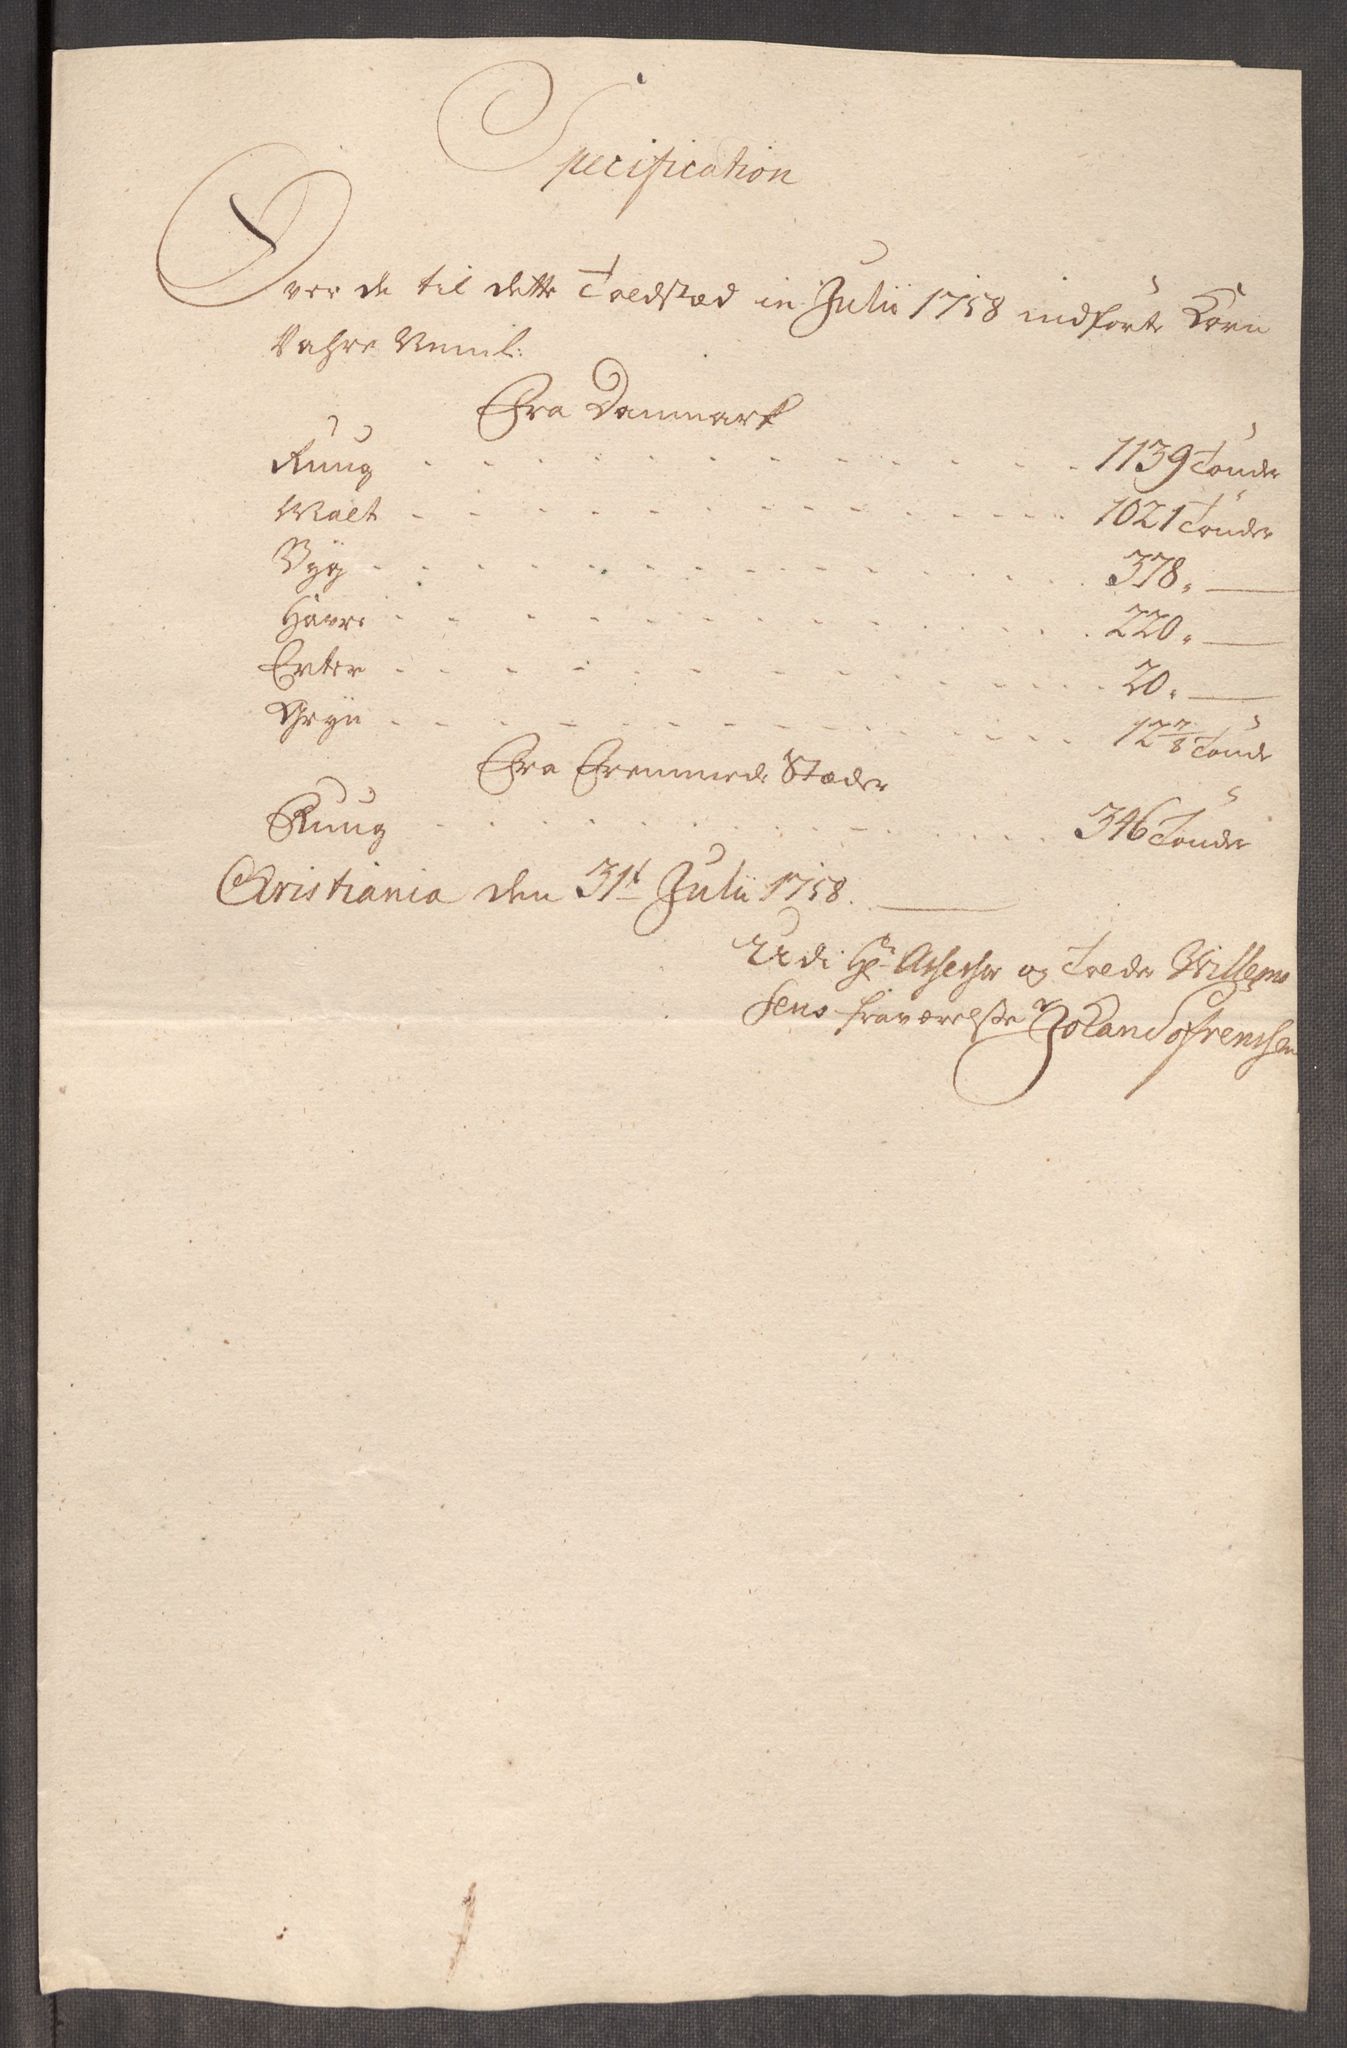 Specification
Over de til dette Toldstæd in Julii 1758 indførte Korn
Vahre Neml:
Fra Danmark
Ruug - - - 1139 Tønder
Malt - - - 1021 Tønder
Byg - - - 378. —
Havre - - - 220. —
Erter - - - 20. —
Gryn - - - 12 7/8 Tønde
Fra Fremmede Stæder
Ruug - - - 346 Tønder
Christiania den 31t Julii 1758. —
Udi Hr Assessor og Tolder Willems
sens fraværelsse Johan Sofrenssen